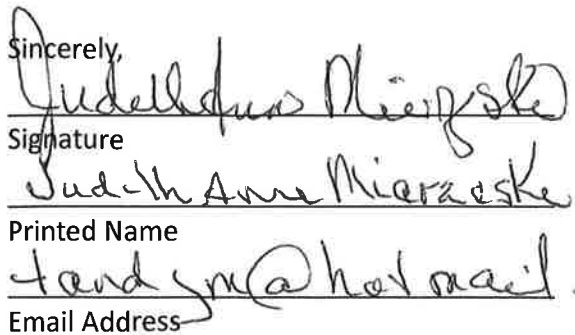 Sincerely,
Judith Anne
Signature
Judith Anne
Printed Name
tandjm@hotmail.
Email Address